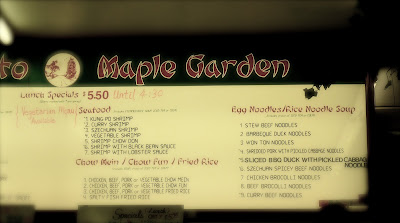 to Maple Garden
Lunch Specials $5.50 Until 4:30
Vegetarian Menu
Available
Seafood
1 KUNG PO SHRIMP
2 CURRY SHRIMP
3 SZECHUAN SHRIMP
4 VEGETABLE SHRIMP
5 SHRIMP CHOW DON
6 SHRIMP WITH BLACK BEAN SAUCE
7 SHRIMP WITH LOBSTER SAUCE
Chow Mein / Chow Fun / Fried Rice
1 CHICKEN, BEEF, PORK or VEGETABLE CHOW MEIN
2 CHICKEN, BEEF, PORK or VEGETABLE CHOW FUN
3 CHICKEN, BEEF, PORK or VEGETABLE FRIED RICE
4 FISH FRIED RICE
Egg Noodles/Rice Noodle Soup
1 STEW BEEF NOODLES
2 BARBEQUE DUCK NOODLES
3 WON TON NOODLES
4 SHREDDED PORK WITH PICKLED CABBAGE NOODLES
5 SLICED BBQ DUCK WITH PICKLED CABBAGE NOODLES
6 SZECHUAN SPICEY BEEF NOODLES
7 CHICKEN BROCOLLI NOODLES
8 BEEF BROCOLLI NOODLES
9 CURRY BEEF NOODLES
Specials